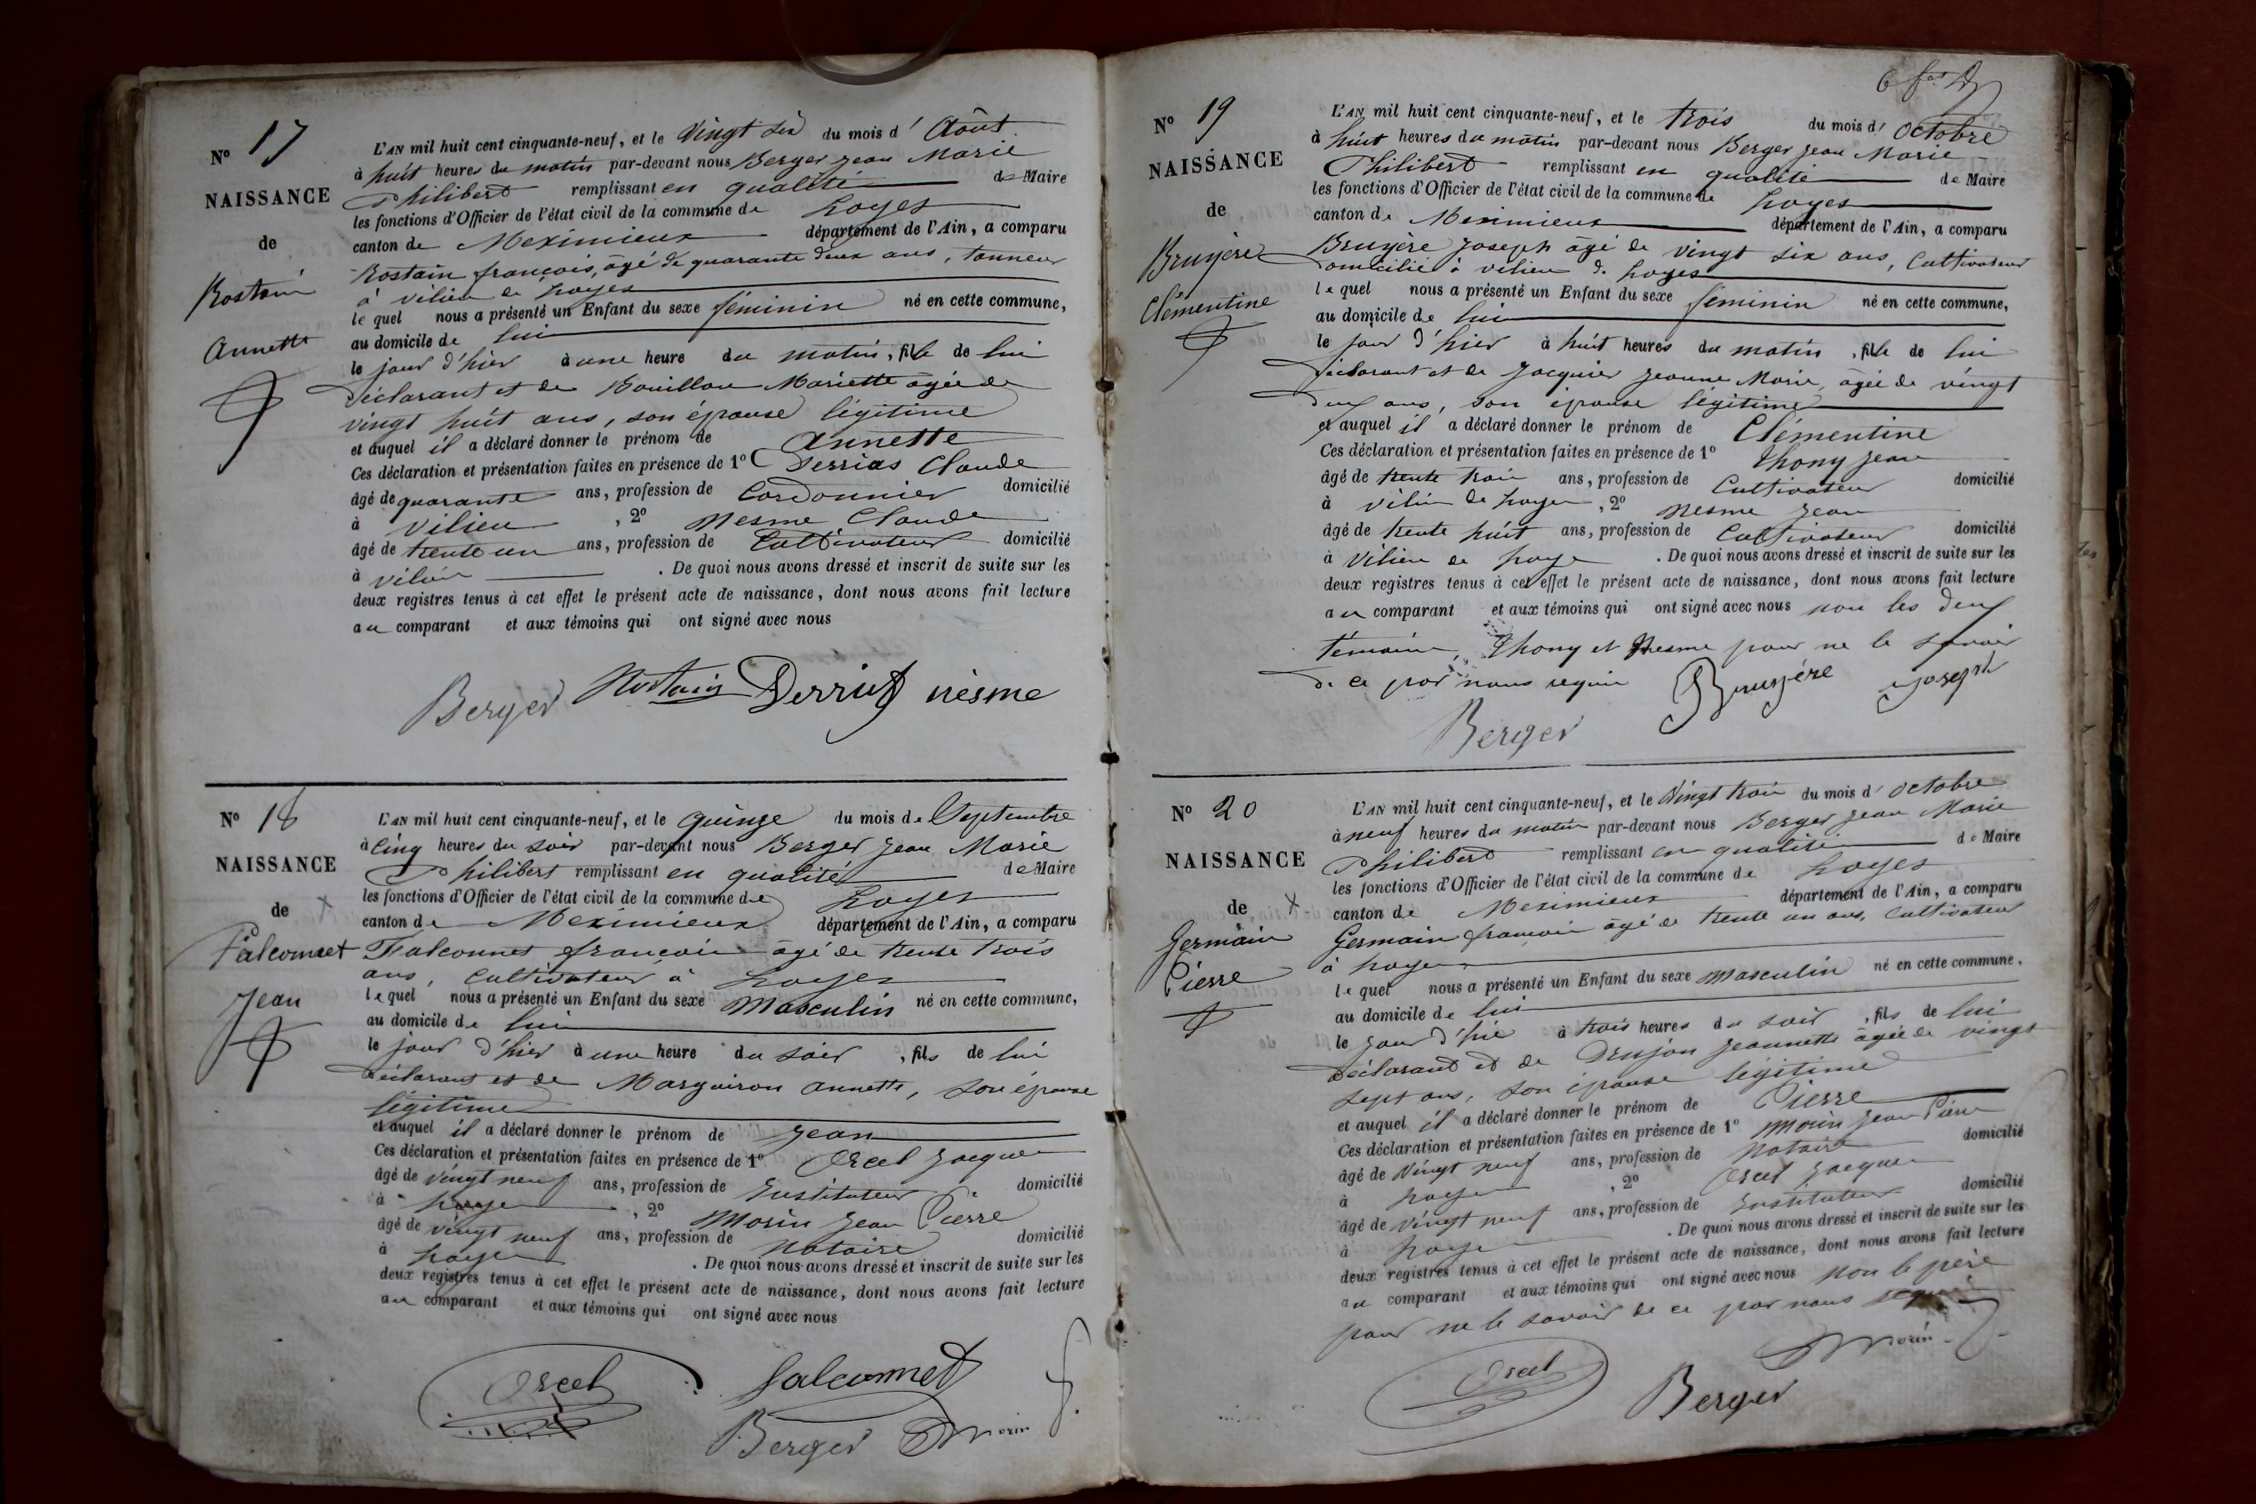 N° 17
NAISSANCE
de
Rostain
Annette
L'AN mil huit cent cinquante-neuf, et le vingt six du mois d' Août
à huit heures du matin par-devant nous Berger Jean Marie
Philibert remplissant en qualité de Maire
les fonctions d'Officier de l'état civil de la commune de Loyes
canton de Meximieux département de l'Ain, a comparu
Rostain françois, âgé de quarante deux ans, tanneur
à vilieu de Loyes
lequel nous a présenté un Enfant du sexe féminin né en cette commune,
au domicile de lui
le jour d'hier à une heure du matin, fille de lui
déclarant et de Bouillon Mariette âgée de
vingt huit ans, son épouse légitime
et auquel il a déclaré donner le prénom de Annette
Ces déclaration et présentation faites en présence de 1° Derrias Claude
âgé de quarante ans, profession de Cordonnier domicilié
à vilieu , 2° Nesme Claude
âgé de trente un ans, profession de Cultivateur domicilié
à vilieu . De quoi nous avons dressé et inscrit de suite sur les
deux registres tenus à cet effet le présent acte de naissance, dont nous avons fait lecture
au comparant et aux témoins qui ont signé avec nous
Berger Rostain nesme
N° 18
NAISSANCE
de
Falconnet
Jean
L'AN mil huit cent cinquante-neuf, et le quinze du mois de Septembre
à cinq heures du soir par-devant nous Berger Jean Marie
Philibert remplissant en qualité de Maire
les fonctions d'Officier de l'état civil de la commune de Loyes
canton de Meximieux département de l'Ain, a comparu
Falconnet françois âgé de trente trois
ans, cultivateur à Loyes
lequel nous a présenté un Enfant du sexe Masculin né en cette commune,
au domicile de lui
le jour d'hier à une heure du soir, fils de lui
déclarant et de Marguiron Annette, son épouse
légitime
et auquel il a déclaré donner le prénom de Jean
Ces déclaration et présentation faites en présence de 1° Orcel Jacques
âgé de vingt neuf ans, profession de Instituteur domicilié
à Loyes , 2° Morin Jean Pierre
âgé de vingt neuf ans, profession de Notaire domicilié
à Loyes . De quoi nous avons dressé et inscrit de suite sur les
deux registres tenus à cet effet le présent acte de naissance, dont nous avons fait lecture
au comparant et aux témoins qui ont signé avec nous
Orcel falconnet
Berger Morin
N° 19
NAISSANCE
de
Bruyère
Clémentine
L'AN mil huit cent cinquante-neuf, et le trois du mois d' octobre
à huit heures du matin par-devant nous Berger Jean Marie
Philibert remplissant en qualité de Maire
les fonctions d'Officier de l'état civil de la commune de Loyes
canton de Meximieux département de l'Ain, a comparu
Bruyère Joseph âgé de vingt six ans, Cultivateur
domicilié à vilieu de Loyes
lequel nous a présenté un Enfant du sexe féminin né en cette commune,
au domicile de lui
le jour d'hier à huit heures du matin, fille de lui
déclarant et de Jacquier Jeanne Marie, âgée de vingt
deux ans, son épouse légitime
et auquel il a déclaré donner le prénom de Clémentine
Ces déclaration et présentation faites en présence de 1° Thony Jean
âgé de trente trois ans, profession de Cultivateur domicilié
à vilieu de Loyes , 2° Nesme Jean
âgé de trente huit ans, profession de Cultivateur domicilié
à Vilieu de Loyes . De quoi nous avons dressé et inscrit de suite sur les
deux registres tenus à cet effet le présent acte de naissance, dont nous avons fait lecture
au comparant et aux témoins qui ont signé avec nous non les deux
témoins, Thony et Nesme pour ne le savoir
de ce par nous requis Bruyére joseph
Berger
N° 20
NAISSANCE
de
Germain
Pierre
L'AN mil huit cent cinquante-neuf, et le vingt trois du mois d' octobre
à neuf heures du matin par-devant nous Berger Jean Marie
Philibert remplissant en qualité de Maire
les fonctions d'Officier de l'état civil de la commune de Loyes
canton de Meximieux département de l'Ain, a comparu
Germain françois âgé de trente un ans, cultivateur
à Loyes
lequel nous a présenté un Enfant du sexe masculin né en cette commune,
au domicile de lui
le jour d'hier à trois heures du soir, fils de lui
déclarant et de Drujon Jeannette âgée de vingt
sept ans, son épouse légitime
et auquel il a déclaré donner le prénom de Pierre
Ces déclaration et présentation faites en présence de 1° Morin Jean Pierre
âgé de vingt neuf ans, profession de Notaire domicilié
à Loyes , 2° Orcel Jacques
âgé de vingt neuf ans, profession de Instituteur domicilié
à Loyes . De quoi nous avons dressé et inscrit de suite sur les
deux registres tenus à cet effet le présent acte de naissance, dont nous avons fait lecture
au comparant et aux témoins qui ont signé avec nous non le père
pour ne le savoir de ce par nous requis
Orcel Berger Morin